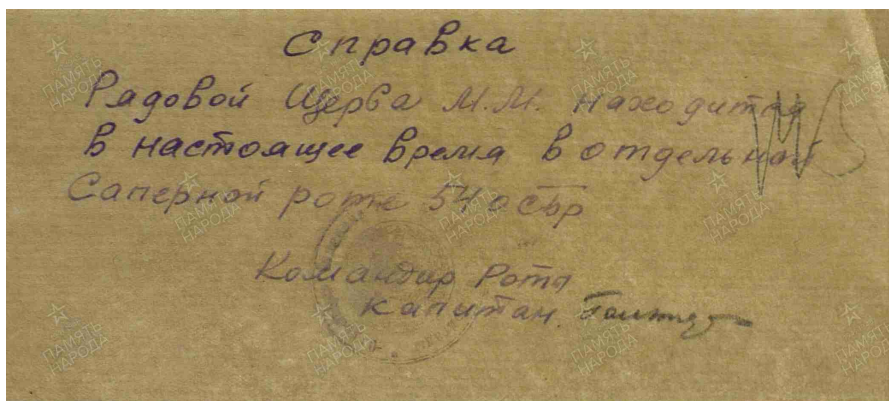 Справка
Рядовой Щерба М.М. находится
в настоящее время в отдельной
Саперной роте 54 осбр
Командир Роты
Капитан.